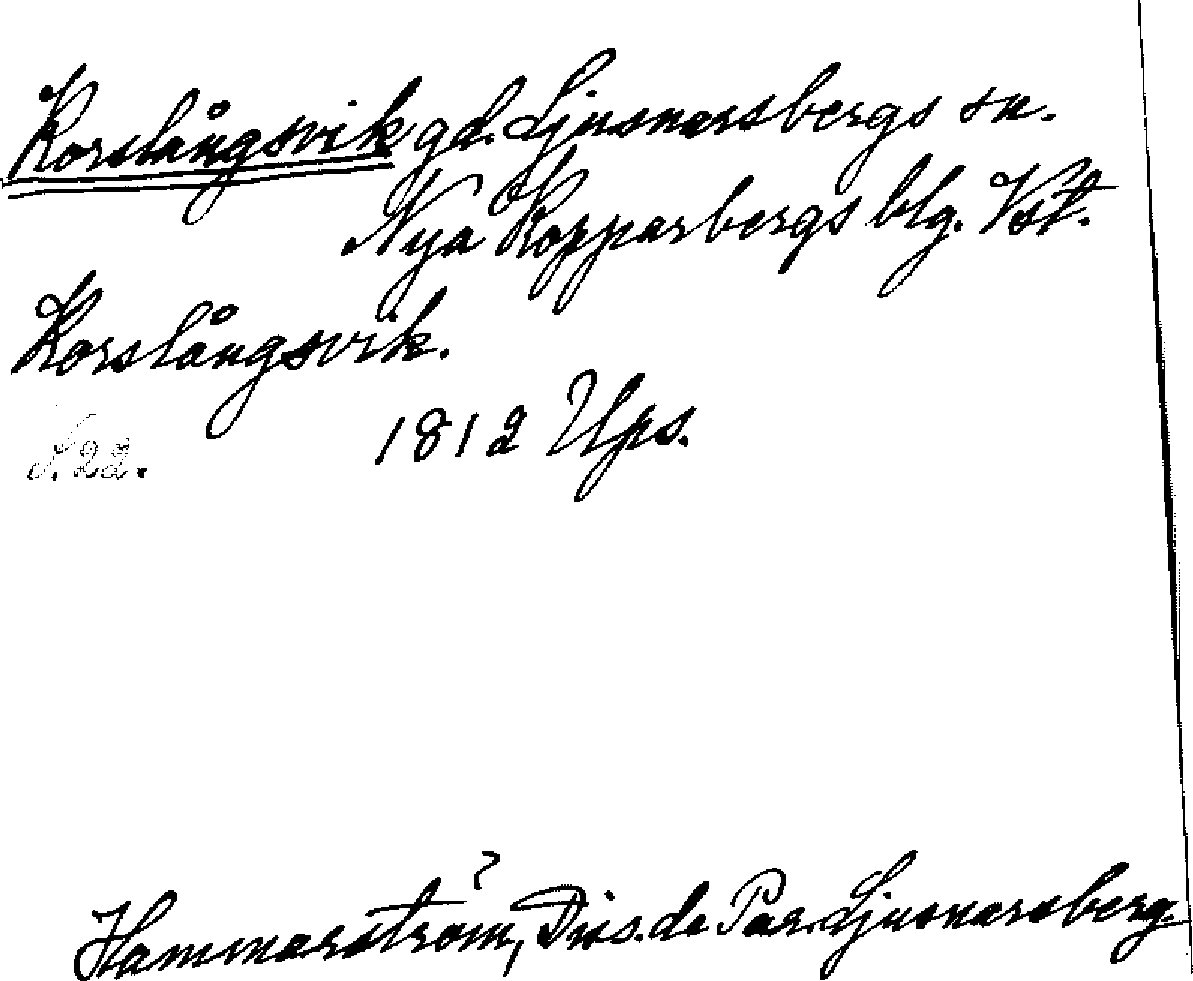 Korslångsvik gd. Ljusnarsbergs sn.
Nya Kopparbergs blg. Vst.
Korslångsvik.
S. 22. 1812 Ups.
?
Hammarström, Diss. de Par. Ljusnarsberg.